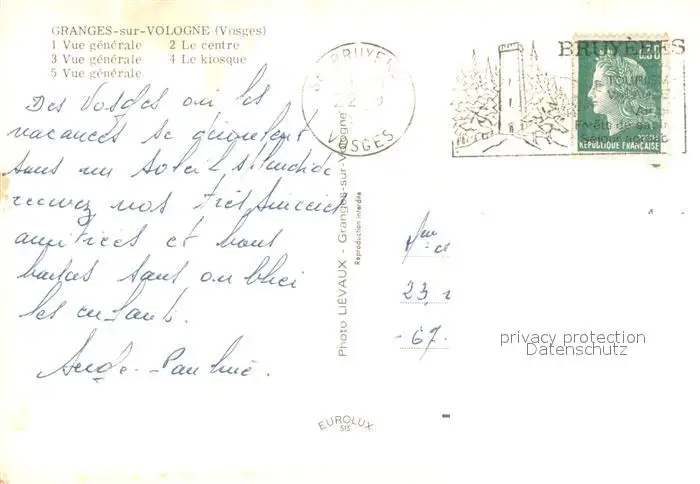 GRANGES-sur-VOLOGNE (Vosges)
1 Vue générale 2 Le centre
3 Vue générale 4 Le kiosque
5 Vue générale
Des Vosges où les
vacances se
sous un soleil splendide
recevez nos très sincères
amitiées et bons
baisers sans oublier
les enfants.
Photo LIÉVAUX - Granges-sur-Vologne
Reproduction interdite
EUROLUX
515
BRUYÈRES
VOSGES
BRUYÈRES
0,30
RÉPUBLIQUE FRANÇAISE
23,
-67-
privacy protection
Datenschutz